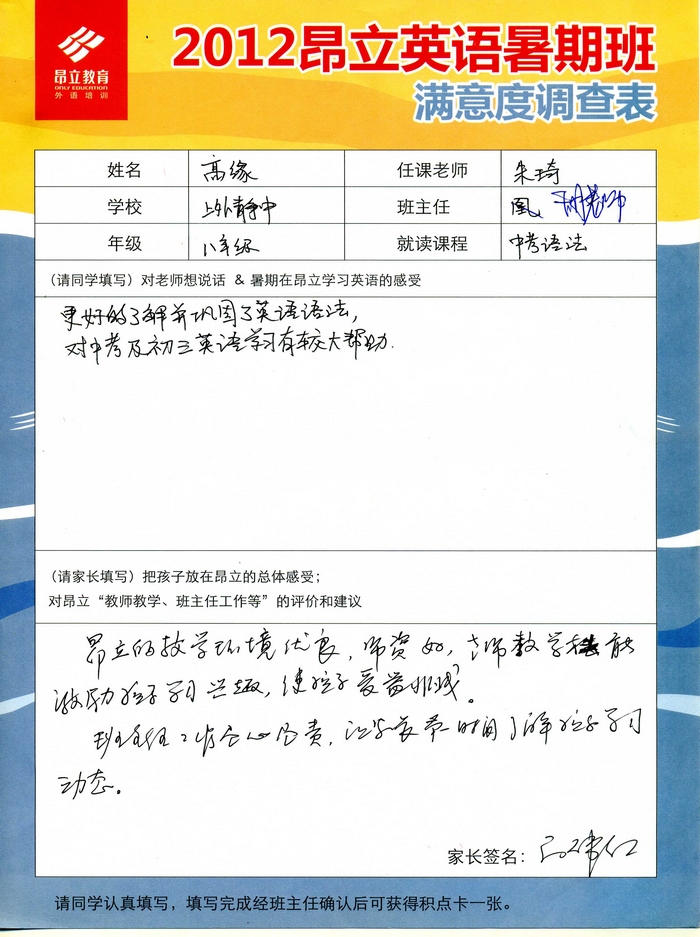 昂立教育
ONLY EDUCATION
外语培训
2012昂立英语暑期班
满意度调查表
姓名 高缘 任课老师 朱琦
学校 上外静中 班主任
年级 八年级 就读课程 中考语法
(请同学填写)对老师想说话 & 暑期在昂立学习英语的感受
更好的了解并巩固了英语语法,
对中考及初三英语学习有较大帮助.
(请家长填写)把孩子放在昂立的总体感受;
对昂立“教师教学、班主任工作等”的评价和建议
昂立的教学环境优良,师资好,老师教学能
激励孩子学习兴趣,使孩子受益匪浅。
班主任工作尽心尽责,让家长第一时间了解孩子学习
动态。
家长签名:
请同学认真填写,填写完成经班主任确认后可获得积点卡一张。